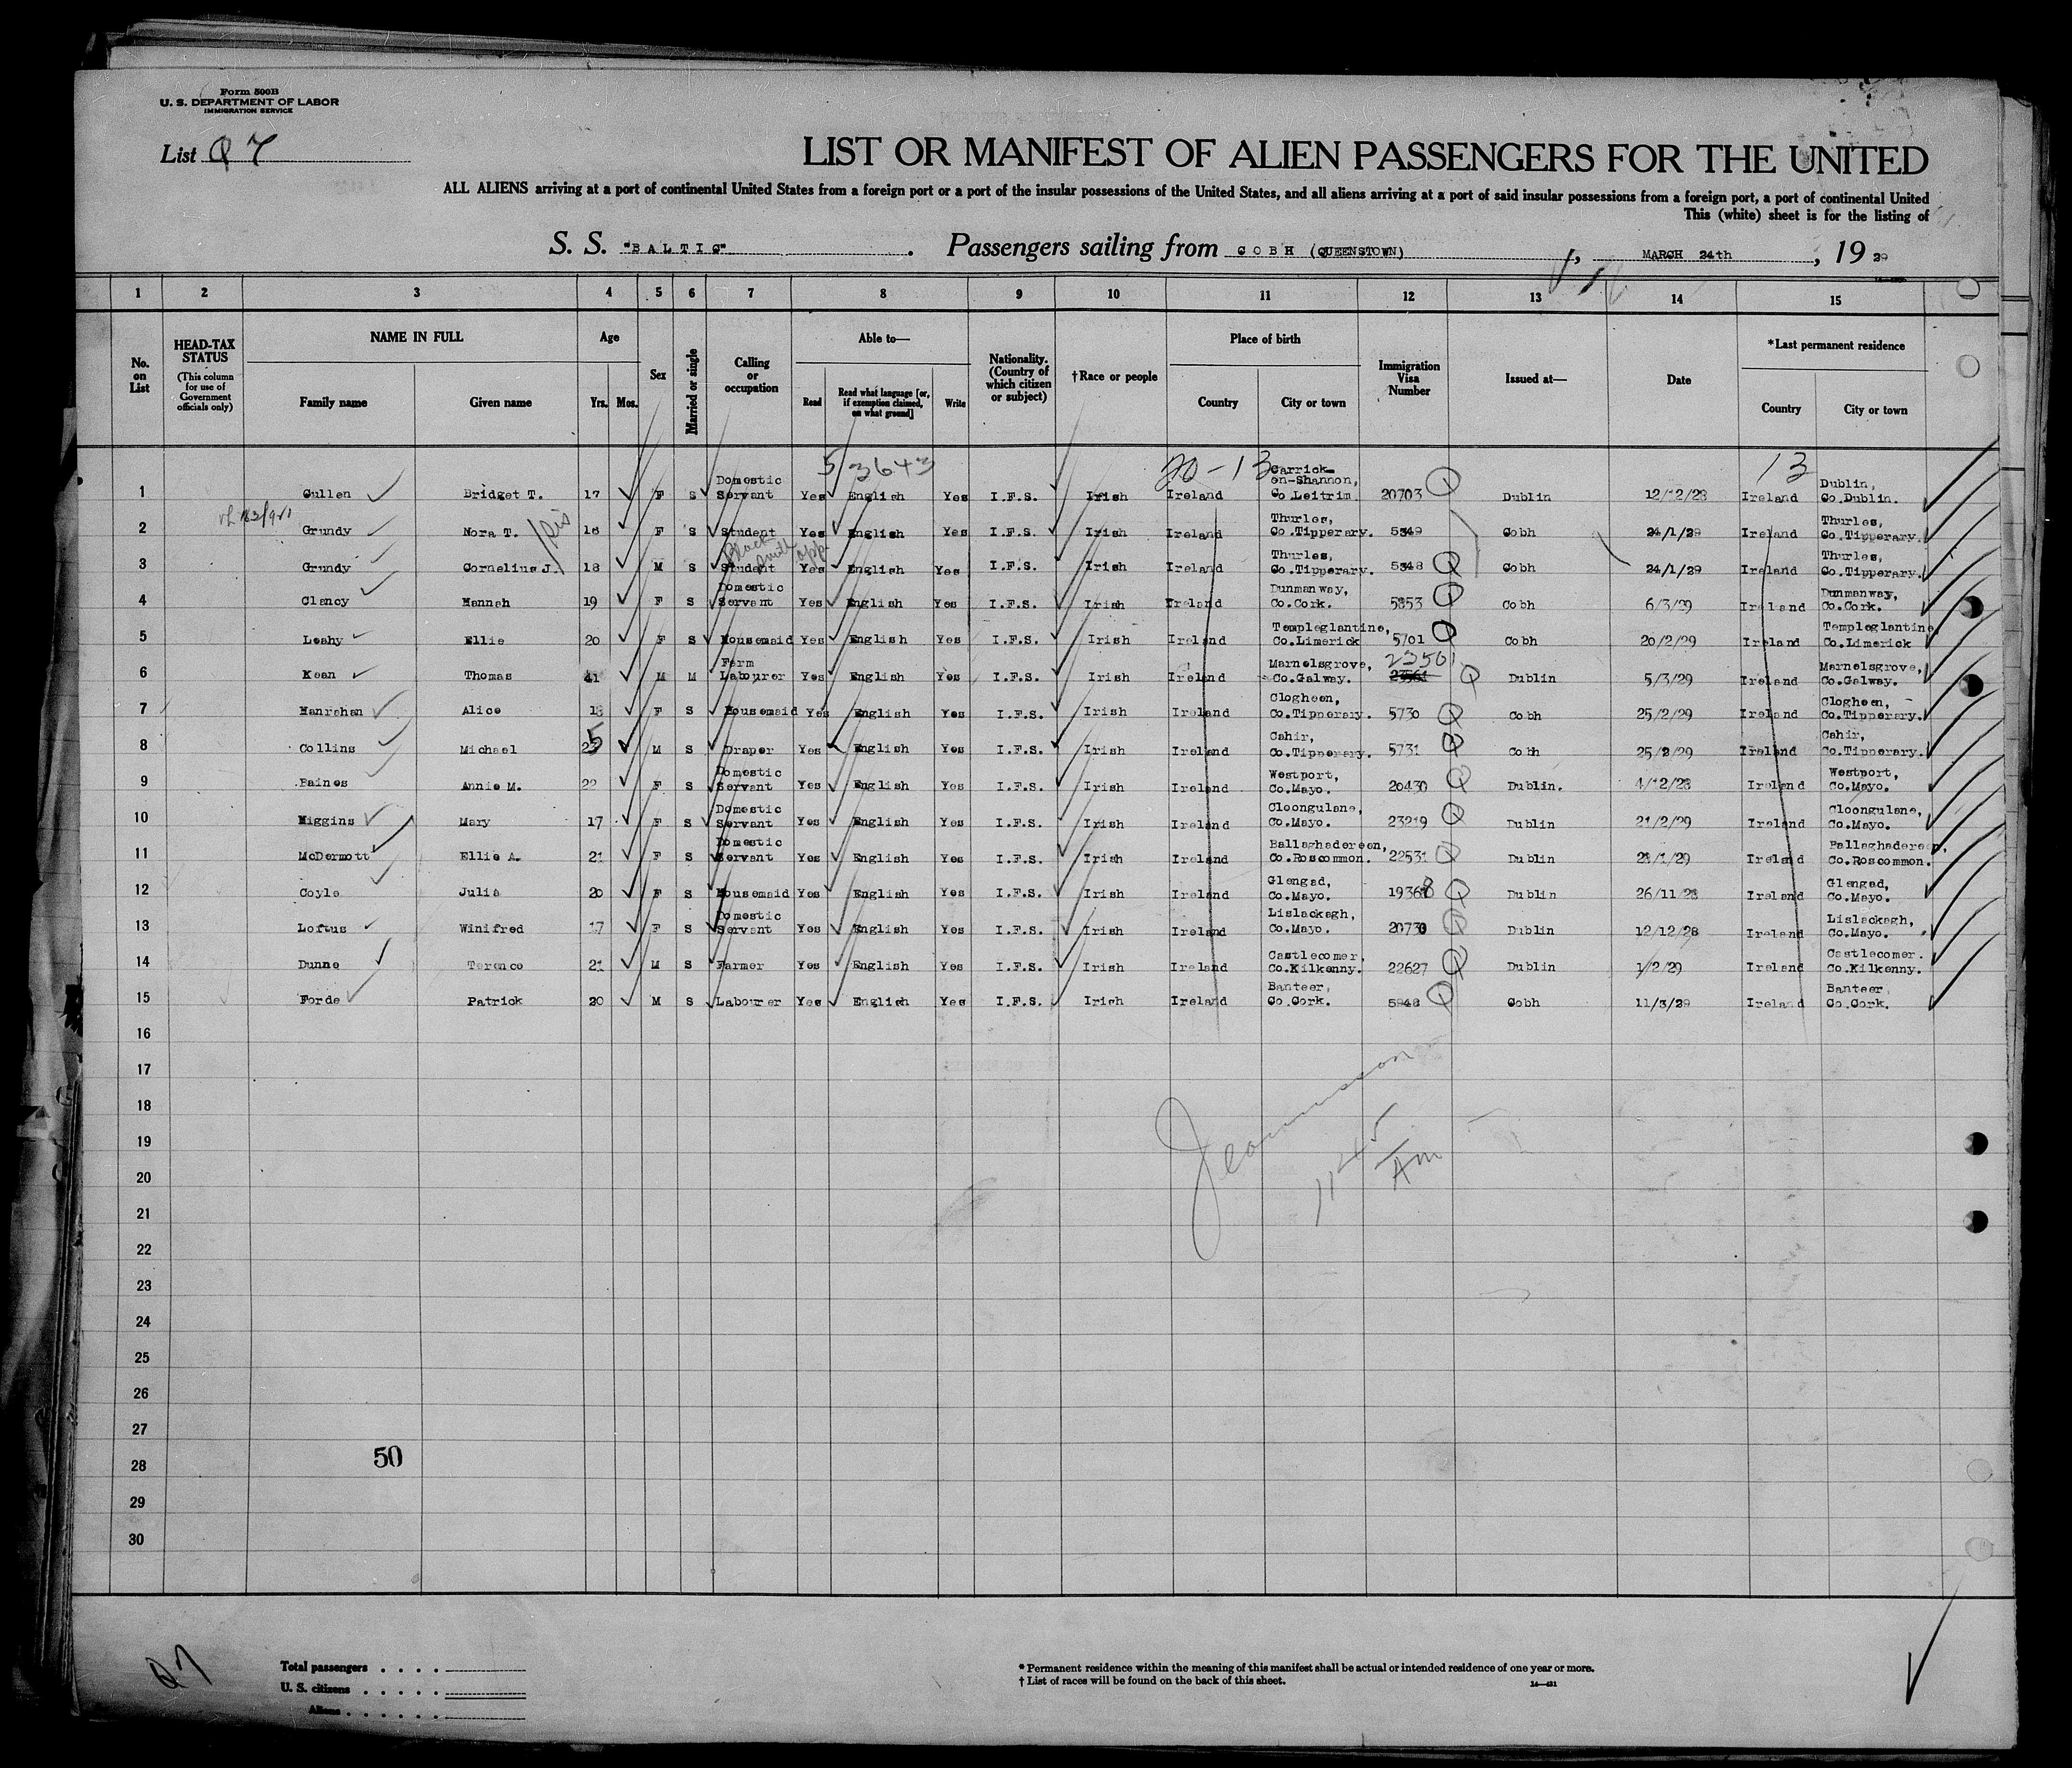 Form 500B
U. S. DEPARTMENT OF LABOR
IMMIGRATION SERVICE
List Q 7
LIST OR MANIFEST OF ALIEN PASSENGERS FOR THE UNITED
ALL ALIENS arriving at a port of continental United States from a foreign port or a port of the insular possessions of the United States, and all aliens arriving at a port of said insular possessions from a foreign port, a port of continental United
This (white) sheet is for the listing of
S. S. "BALTIC" . Passengers sailing from COBH (QUEENSTOWN) , MARCH 24th , 19 29
1 2 3 4 5 6 7 8 9 10 11 12 13 14 15
No. on List
HEAD-TAX STATUS (This column for use of Government officials only)
NAME IN FULL Family name Given name
Age Yrs. Mos.
Sex
Married or single
Calling or occupation
Able to— Read Read what language [or, if exemption claimed, on what ground] Write
Nationality. (Country of which citizen or subject)
†Race or people
Place of birth Country City or town
Immigration Visa Number
Issued at—
Date
*Last permanent residence Country City or town
53643 20-13 13
1 Cullen Bridget T. 17 F S Domestic Servant Yes English Yes I.F.S. Irish Ireland Carrick-on-Shannon, Co Leitrim. 20703 Q Dublin 12/12/28 Ireland Dublin, Co.Dublin.
2 Grundy Nora T. 16 F S Student Yes English Yes I.F.S. Irish Ireland Thurles, Co.Tipperary. 5349 Cobh 24/1/29 Ireland Thurles, Co.Tipperary.
3 Grundy Cornelius J. 18 M S Student Yes English Yes I.F.S. Irish Ireland Thurles, Co.Tipperary. 5348 Q Cobh 24/1/29 Ireland Thurles, Co.Tipperary.
4 Clancy Hannah 19 F S Domestic Servant Yes English Yes I.F.S. Irish Ireland Dunmanway, Co.Cork. 5853 Q Cobh 6/3/29 Ireland Dunmanway, Co.Cork.
5 Leahy Ellie 20 F S Housemaid Yes English Yes I.F.S. Irish Ireland Templeglantine, Co.Limerick 5701 Q Cobh 20/2/29 Ireland Templeglantine, Co.Limerick
6 Kean Thomas 41 M M Farm Labourer Yes English Yes I.F.S. Irish Ireland Marnelsgrove, Co.Galway. 23501 Q Dublin 5/3/29 Ireland Marnelsgrove, Co.Galway.
7 Hanrahan Alice 18 F S Housemaid Yes English Yes I.F.S. Irish Ireland Clogheen, Co.Tipperary. 5730 Q Cobh 25/2/29 Ireland Clogheen, Co.Tipperary.
8 Collins Michael 25 M S Draper Yes English Yes I.F.S. Irish Ireland Cahir, Co.Tipperary. 5731 Q Cobh 25/2/29 Ireland Cahir, Co.Tipperary.
9 Baines Annie M. 22 F S Domestic Servant Yes English Yes I.F.S. Irish Ireland Westport, Co.Mayo. 20430 Q Dublin. 4/12/28 Ireland Westport, Co.Mayo.
10 Higgins Mary 17 F S Domestic Servant Yes English Yes I.F.S. Irish Ireland Cloongulane, Co.Mayo. 23219 Q Dublin 21/2/29 Ireland Cloongulane, Co.Mayo.
11 McDermott Ellie A. 21 F S Domestic Servant Yes English Yes I.F.S. Irish Ireland Ballaghadereen, Co.Roscommon. 22531 Q Dublin 28/1/29 Ireland Ballaghadereen, Co.Roscommon.
12 Coyle Julia 20 F S Housemaid Yes English Yes I.F.S. Irish Ireland Glengad, Co.Mayo. 19368 Q Dublin 26/11/28 Ireland Glengad, Co.Mayo.
13 Loftus Winifred 17 F S Domestic Servant Yes English Yes I.F.S. Irish Ireland Lislackagh, Co.Mayo. 20730 Q Dublin 12/12/28 Ireland Lislackagh, Co.Mayo.
14 Dunne Terence 21 M S Farmer Yes English Yes I.F.S. Irish Ireland Castlecomer, Co.Kilkenny. 22627 Q Dublin 1/2/29 Ireland Castlecomer. Co.Kilkenny.
15 Forde Patrick 20 M S Labourer Yes English Yes I.F.S. Irish Ireland Banteer, Co.Cork. 5948 Q Cobh 11/3/29 Ireland Banteer, Co.Cork.
16
17
18
19
1145 AM
20
21
22
23
24
25
26
27
50
28
29
30
Q7
Total passengers . . . .
U. S. citizens . . . . .
Aliens . . . . . .
* Permanent residence within the meaning of this manifest shall be actual or intended residence of one year or more.
† List of races will be found on the back of this sheet.
14—431